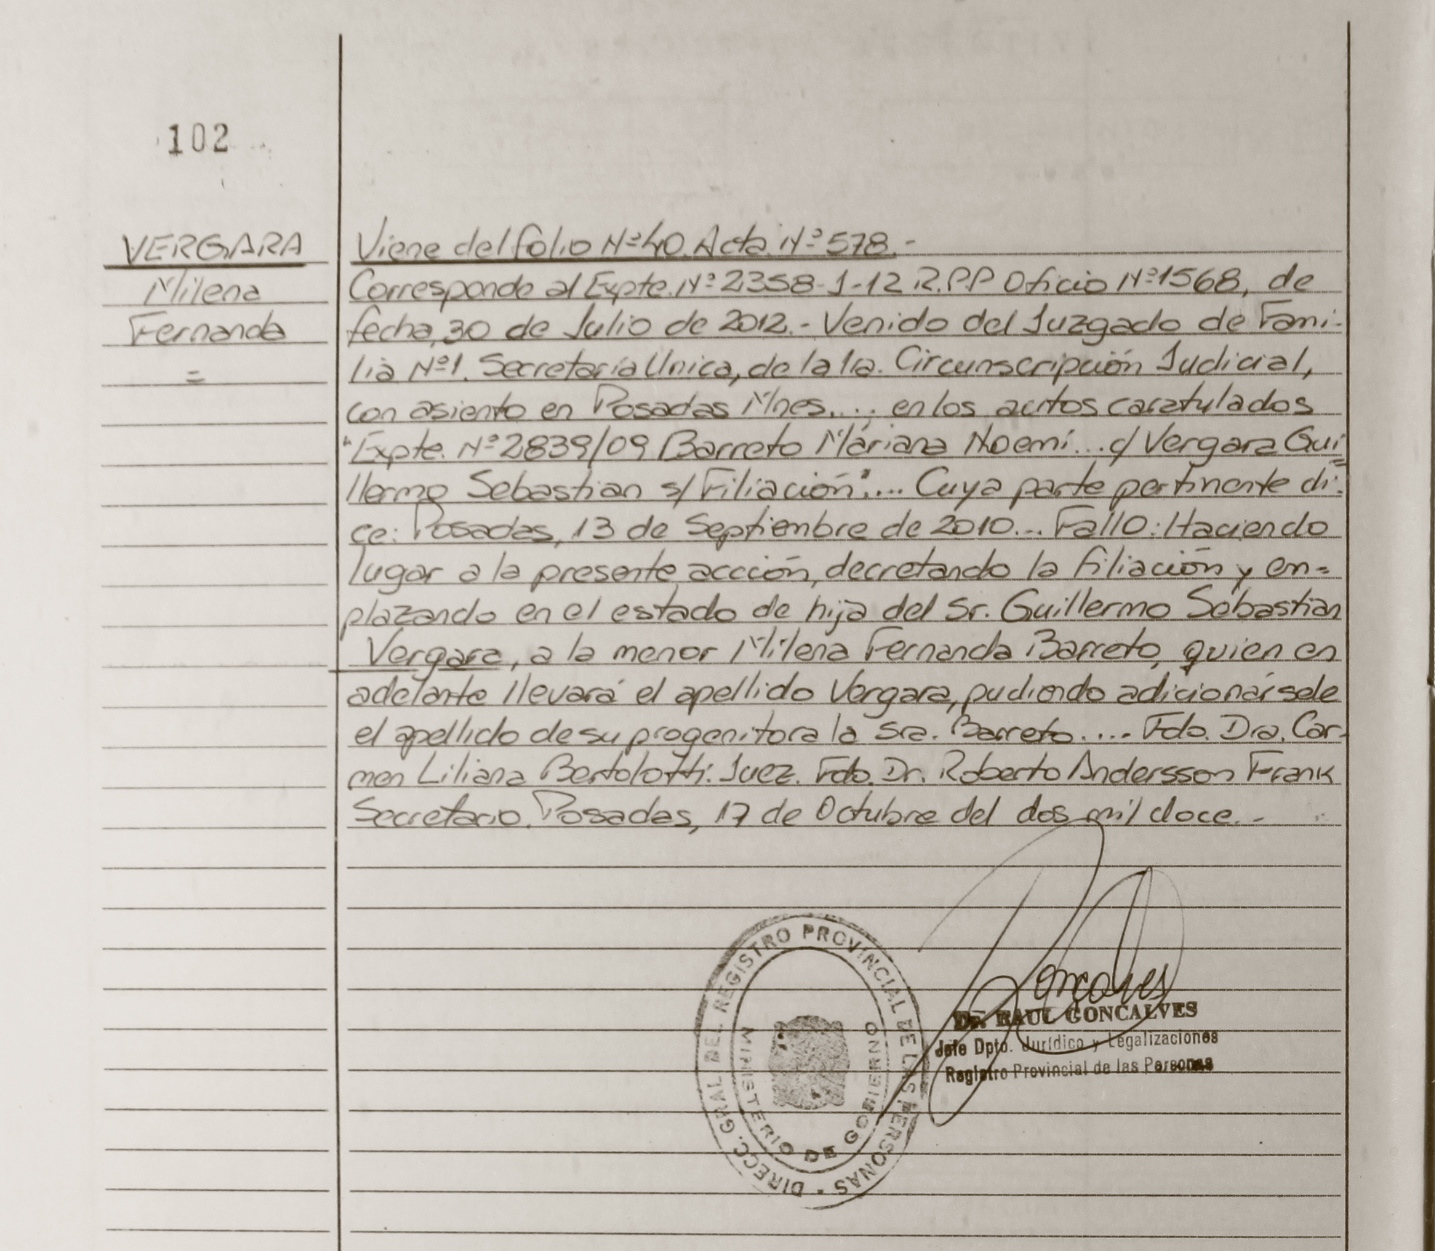 102
VERGARA
Milena
Fernanda
=
Viene del folio Nº40. Acta. Nº578.-
Corresponde al Expte. Nº2358-1-12 R.PP Oficio Nº1568, de
fecha, 30 de Julio de 2012.- Venido del Juzgado de Fami-
lia Nº1. Secretaría Unica, de la 1ra. Circunscripción Judicial,
con asiento en Posadas Mnes.... en los autos caratulados
"Expte. Nº2839/09 Barreto Mariana Noemí... c/ Vergara Gui=
llermo Sebastian s/ Filiación".... Cuya parte pertinente di-
ce: Posadas, 13 de Septiembre de 2010... Fallo: Haciendo
lugar a la presente accción, decretando la filiación y en=
plazando en el estado de hija del Sr. Guillermo Sebastian
Vergara, a la menor Milena Fernanda Barreto, quien en
adelante llevará el apellido Vergara, pudiendo adicionársele
el apellido de su progenitora la Sra. Barreto.... Fdo. Dra. Car-
men Liliana Bertolotti. Juez. Fdo. Dr. Roberto Andersson Frank
Secretario. Posadas, 17 de Octubre del dos mil doce.-
DIRECC. GRAL DEL REGISTRO PROVINCIAL DE LAS PERSONAS
MINISTERIO DE GOBIERNO
Goncalves
Dr. RAUL GONCALVES
Jefe Dpto. Jurídico y Legalizaciones
Registro Provincial de las Personas